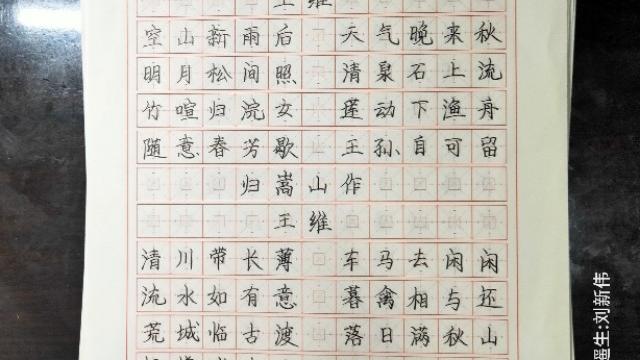 王维
空山新雨后 天气晚来秋
明月松间照 清泉石上流
竹喧归浣女 莲动下渔舟
随意春芳歇 王孙自可留
归嵩山作
王维
清川带长薄 车马去闲闲
流水如有意 暮禽相与还
荒城临古渡 落日满秋山
遥生:刘新伟